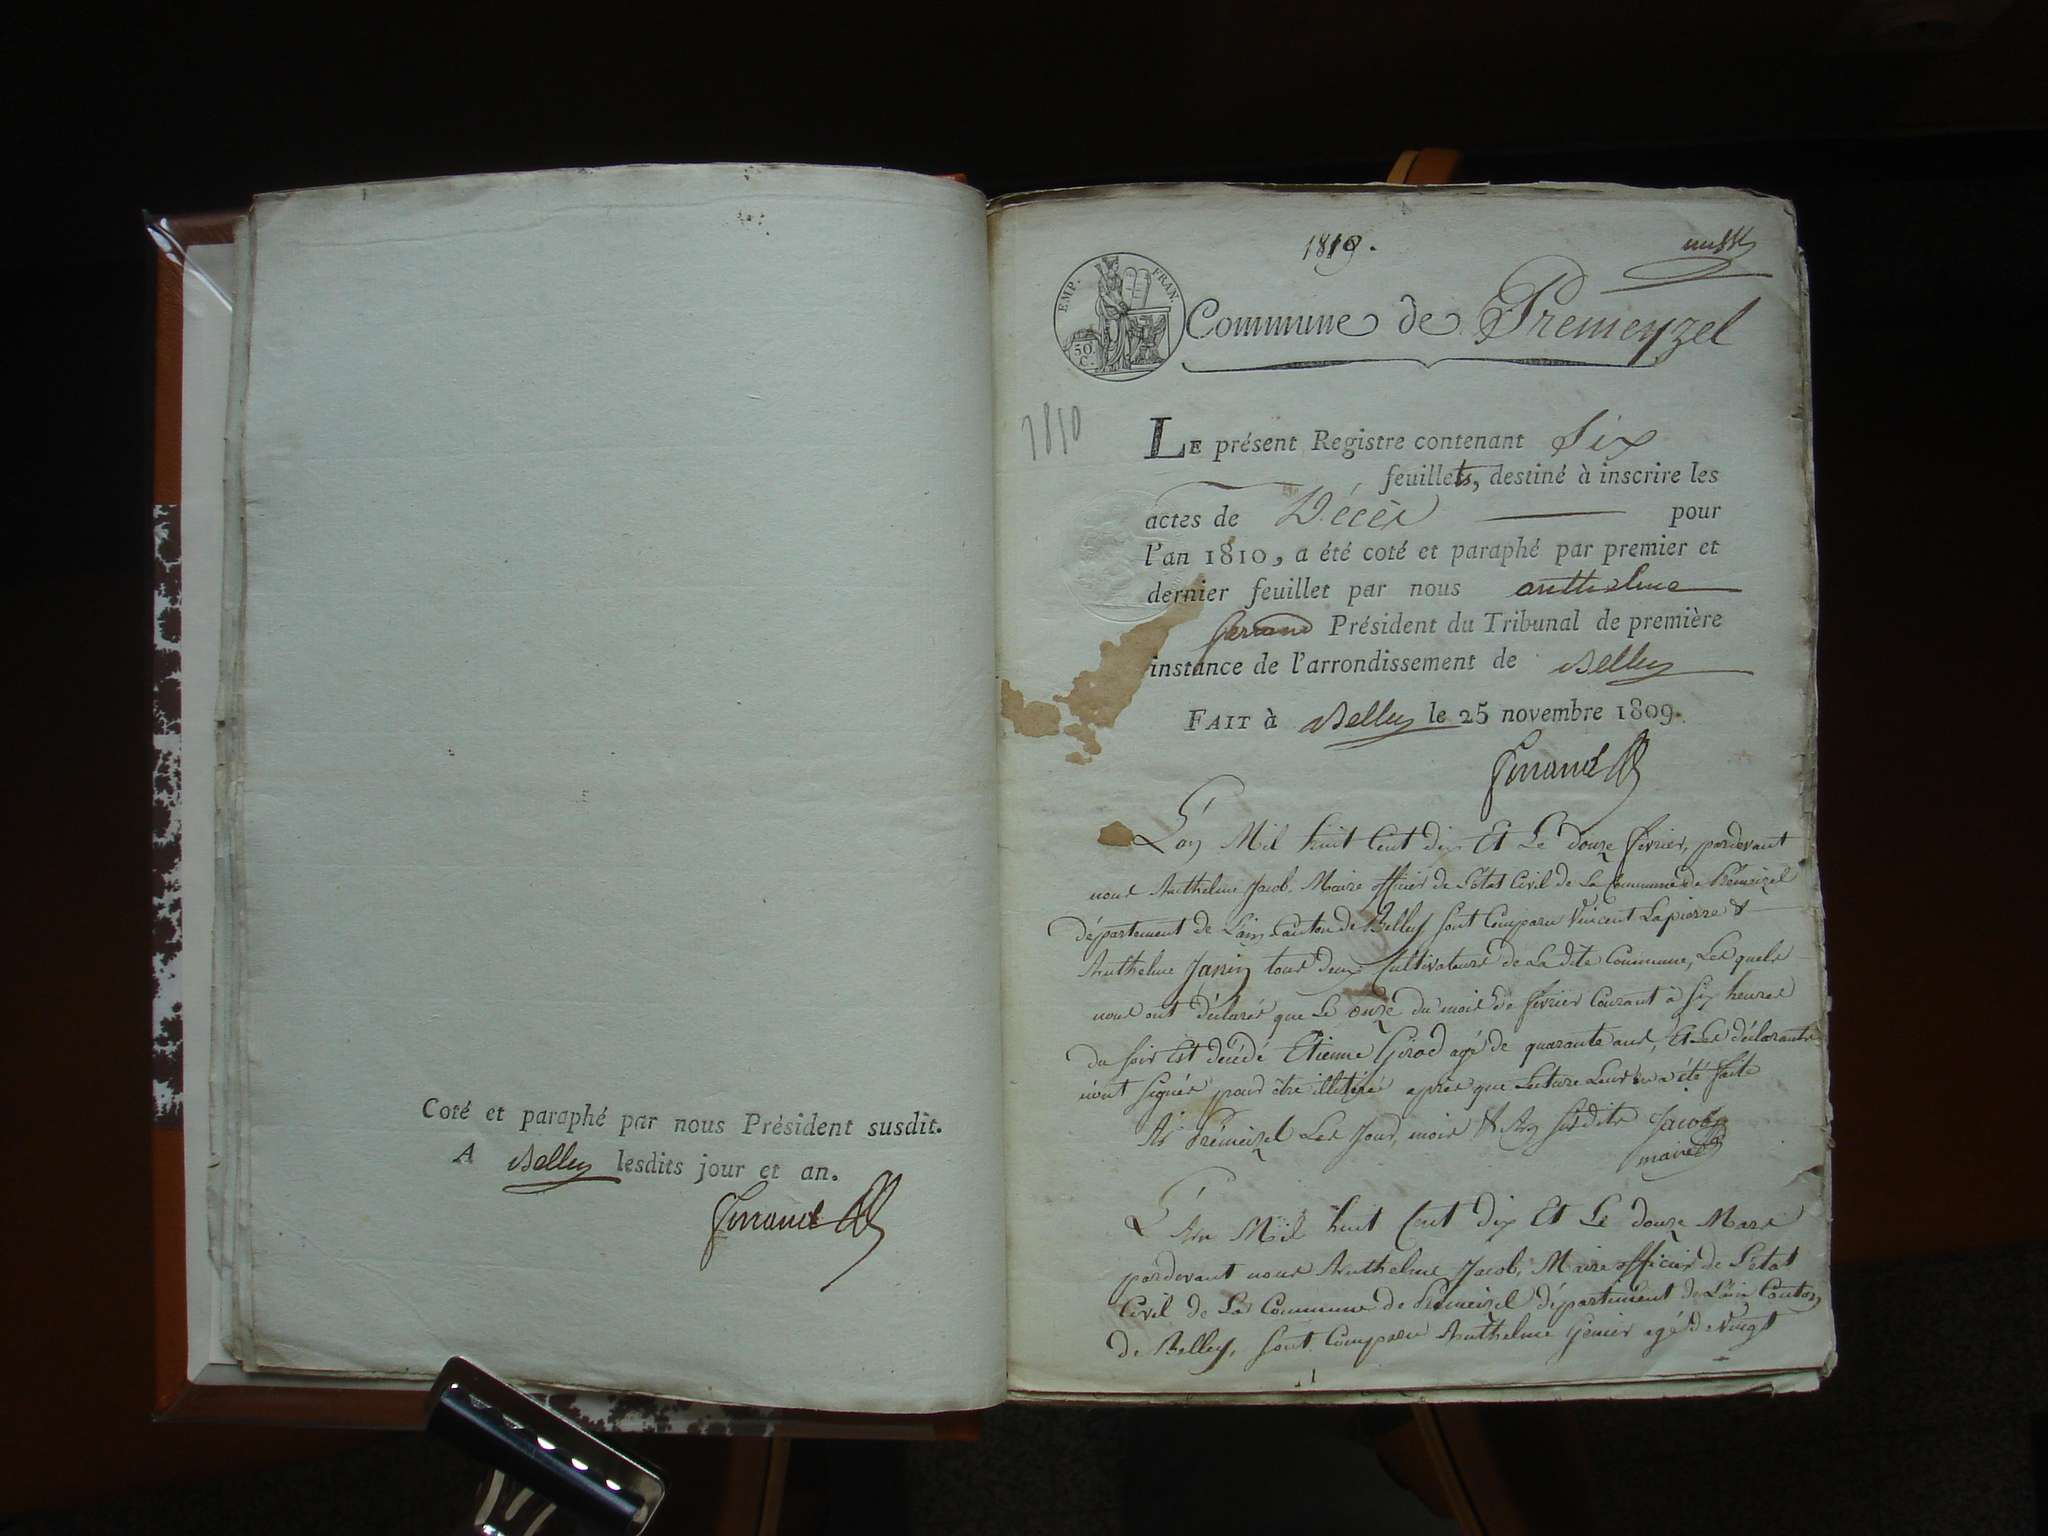 Coté et paraphé par nous Président susdit.
A Belley lesdits jour et an.
Ferrand
1810.
EMP. FRAN.
50 C.
Commune de Premeyzel
1810
LE présent Registre contenant Six
feuillets, destiné à inscrire les
actes de Décès pour
l'an 1810, a été coté et paraphé par premier et
dernier feuillet par nous anthelme
ferrand Président du Tribunal de première
instance de l'arrondissement de Belley
FAIT à Belley le 25 novembre 1809.
Ferrand
L'an Mil huit Cent dix Et Le douze février, pardevant
nous Anthelme Jacob, Maire officier de L'état Civil de La Commune de Prémeizel
département de L'ain Canton de Belley sont Comparu Vincent Lapierre &
Anthelme Janin tous deux Cultivateurs de La dite Commune, Les quels
nous ont déclarés que Le onze du mois de février Courant à six heures
du soir Est décédé Etienne Girod agé de quarante ans, Et Les déclarants
n'ont signés pour être illitéré après que Lecture Leur en a été faite
A Prémeizel Les Jour, mois & An susdits Jacob
maire
L'An Mil huit Cent dix Et Le douze Mars
pardevant nous Anthelme Jacob, Maire officier de L'état
Civil de La Commune de Prémeizel département de L'ain Canton
de Belley, sont Comparu Anthelme Genier agé de Vingt
1